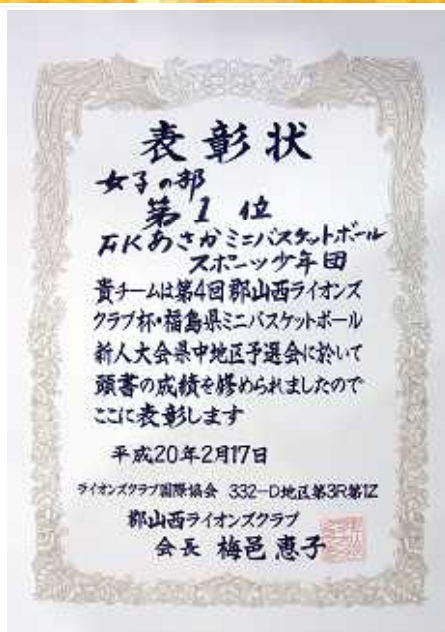 表彰状
女子の部
第1位
FKあさかミニバスケットボール
スポーツ少年団
貴チームは第4回郡山西ライオンズ
クラブ杯・福島県ミニバスケットボール
新人大会県中地区予選会に於いて
頭書の成績を修められましたので
ここに表彰します
平成20年2月17日
ライオンズクラブ国際協会 332-D地区第3R第1Z
郡山西ライオンズクラブ
会長 梅邑恵子